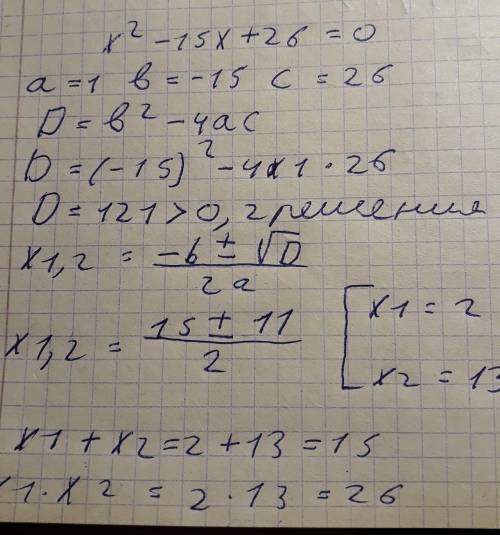 x² - 15x + 26 = 0
a = 1 в = -15 c = 26
D = в² - 4ac
D = (-15)² - 4 * 1 · 26
D = 121 > 0, 2 решения
x1,2 = (-b ± √D) / 2a
x1,2 = (15 ± 11) / 2
[ x1 = 2
x2 = 13
x1 + x2 = 2 + 13 = 15
x1 · x2 = 2 · 13 = 26